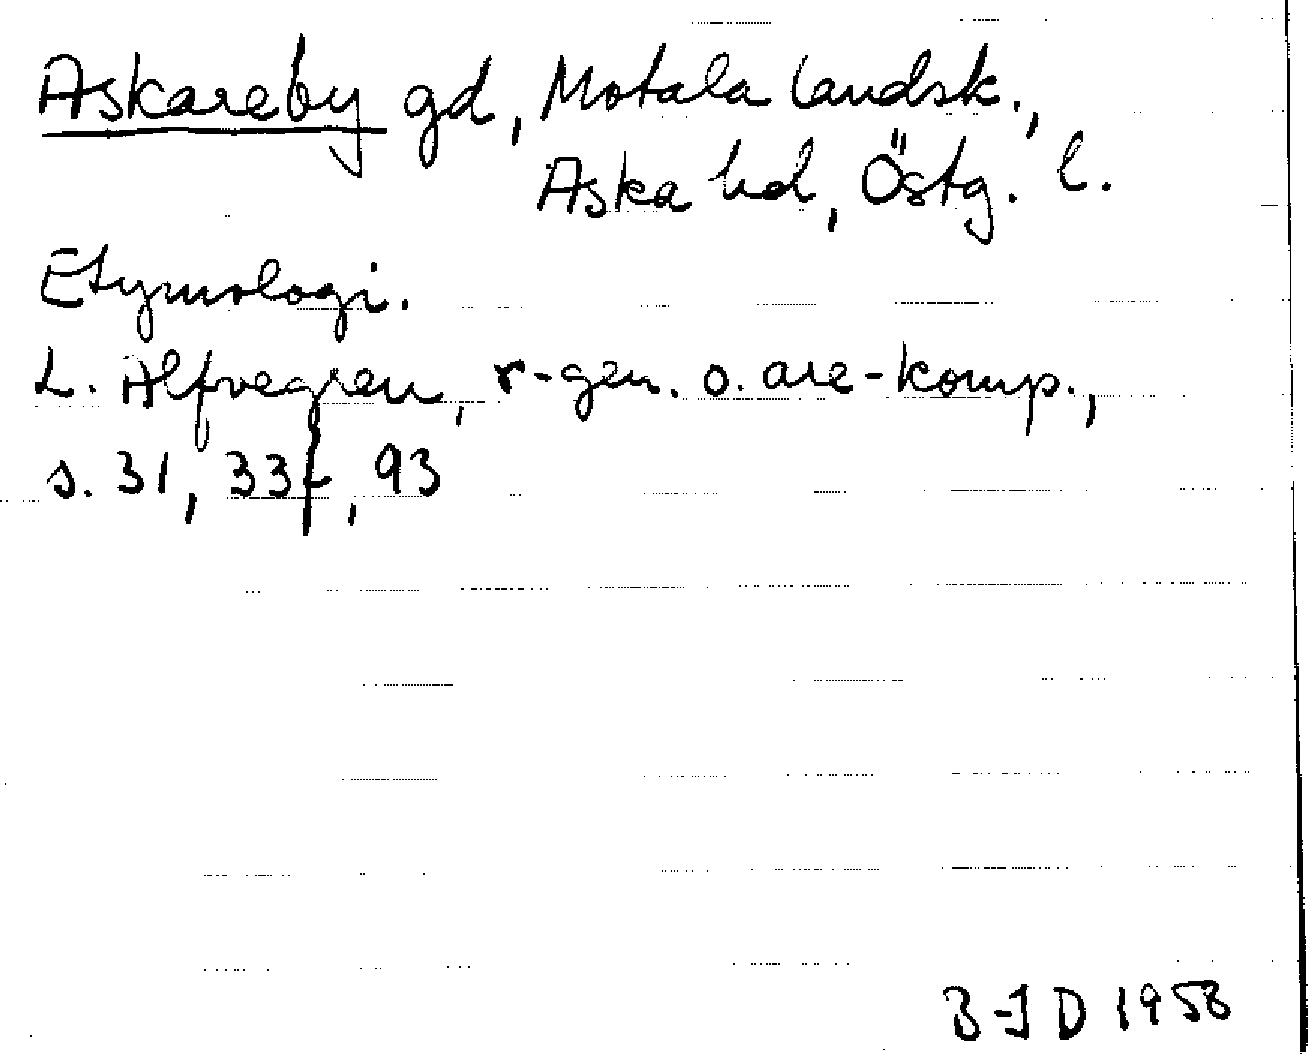 Askareby gd, Motala landsk.,
Aska hd, Östg. l.
Etymologi.
L. Alfvegren, r-gen. o. are-komp.,
s. 31, 33f, 93
B-J D 1958